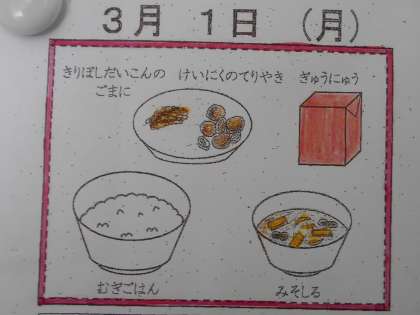 3月 1日 (月)
きりぼしだいこんの けいにくのてりやき ぎゅうにゅう
ごまに
むぎごはん みそしる